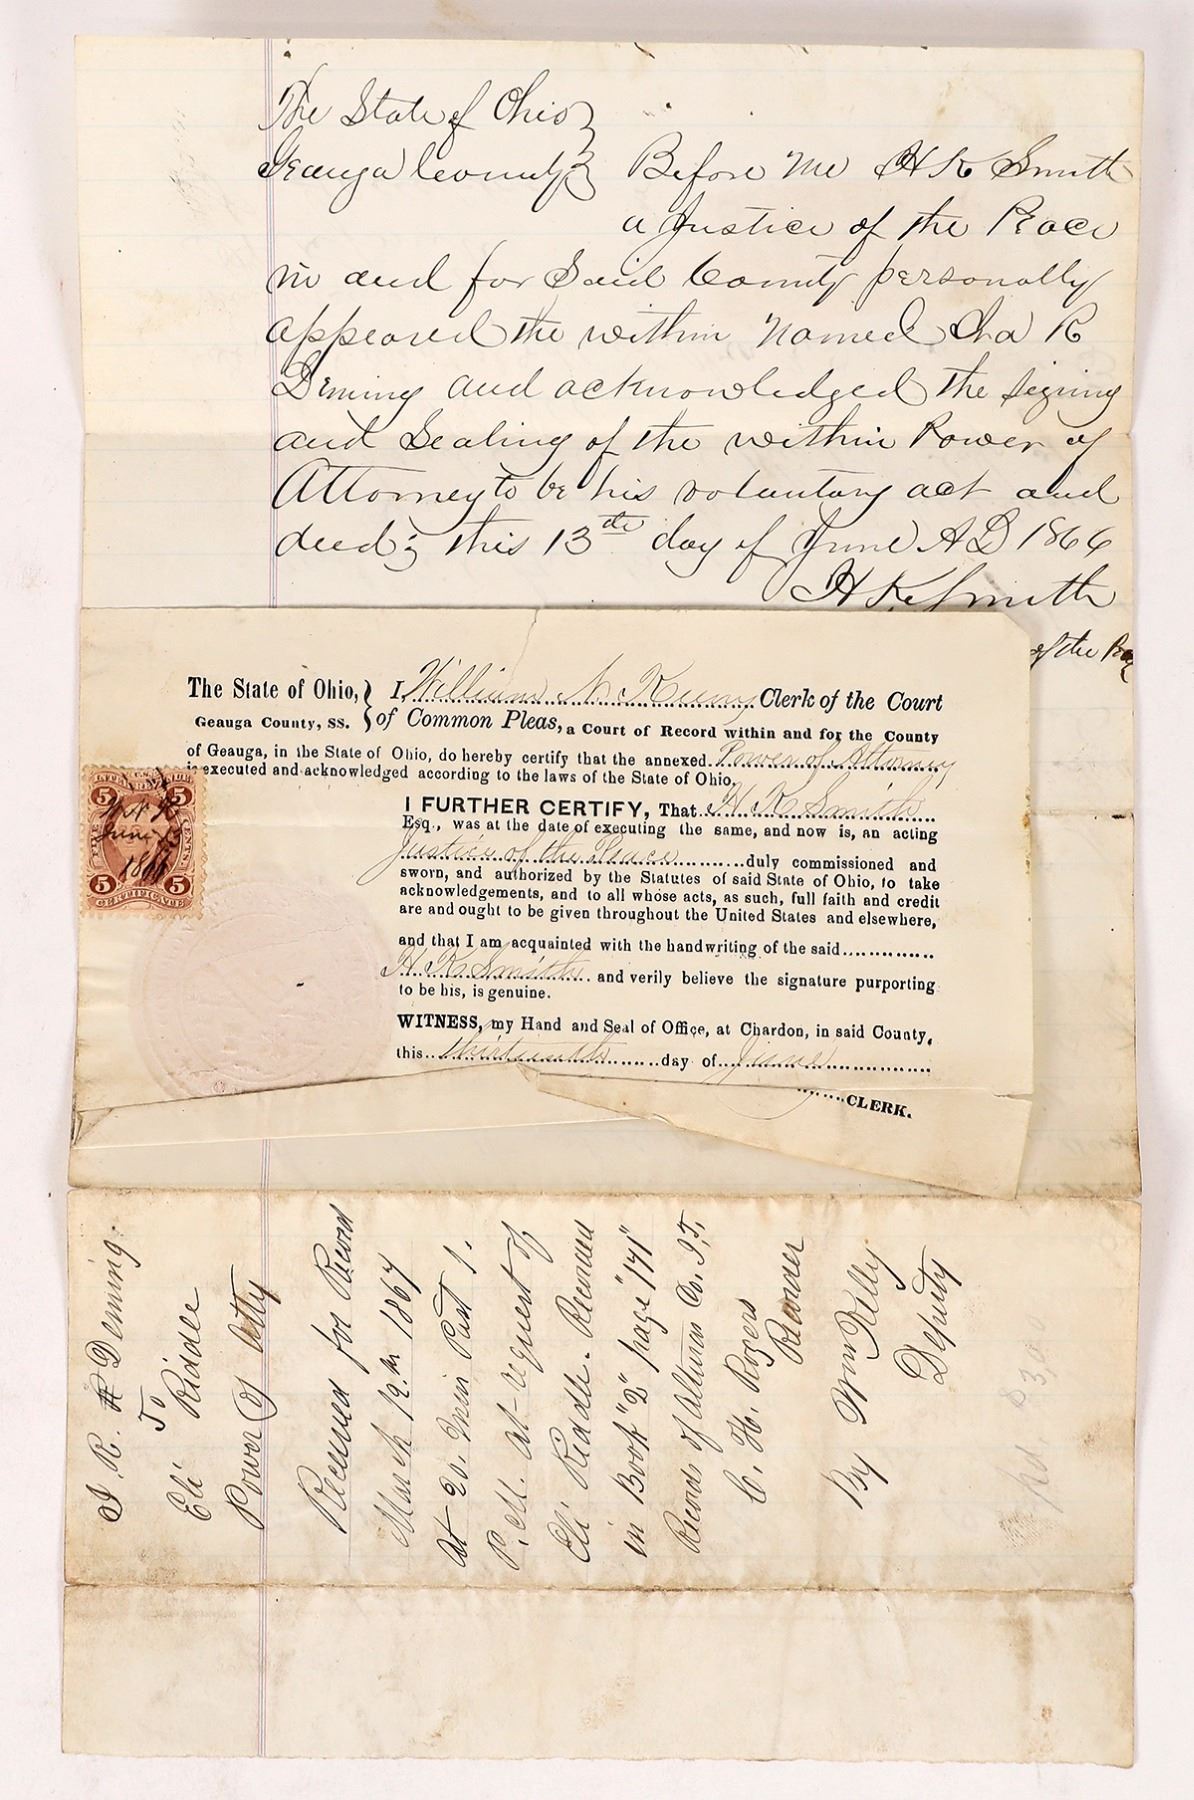 The State of Ohio }
Geauga County } Before Me H K Smith
a Justice of the Peace
in and for Said County personally
appeared the within Named Ira R
Deming and acknowledged the signing
and Sealing of the within Power of
Attorney to be his voluntary act and
deed; this 13th day of June AD 1866
H K Smith
of the Peace
The State of Ohio, } I, William N. Keeny Clerk of the Court
Geauga County, ss. } of Common Pleas, a Court of Record within and for the County
of Geauga, in the State of Ohio, do hereby certify that the annexed Power of Attorney
is executed and acknowledged according to the laws of the State of Ohio.
I FURTHER CERTIFY, That H. K. Smith
Esq., was at the date of executing the same, and now is, an acting
Justice of the Peace duly commissioned and
sworn, and authorized by the Statutes of said State of Ohio, to take
acknowledgements, and to all whose acts, as such, full faith and credit
are and ought to be given throughout the United States and elsewhere,
and that I am acquainted with the handwriting of the said
H. K. Smith and verily believe the signature purporting
to be his, is genuine.
WITNESS, my Hand and Seal of Office, at Chardon, in said County,
this thirteenth day of June
CLERK.
5 5
June 13
1866
5 5
CERTIFICATE
I R. Deming.
To
Eli Riddle
Power of Atty
Received for Record
March 19th 1867
At 20. Min Past 1.
P. M. at request of
Eli Riddle. Recorded
in Book "2" page "171"
Records of Alturas Co. I.T.
C. H. Rogers
Recorder
By Wm Kelly
Deputy